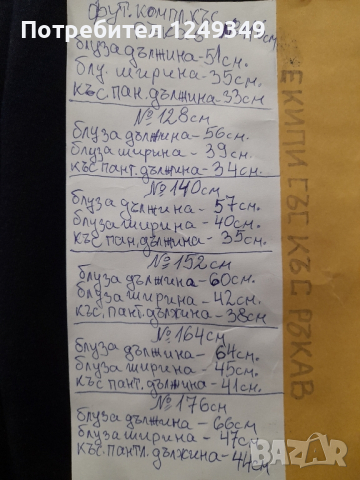 фут. компл. къс
блуза дължина-51см.
блу. ширина-35см.
къс. пан. дължина-33см
№128см
блуза дължина-56см.
блуза ширина-39см.
къс пант. дължина-34см.
№140см
блуза дължина-57см.
блуза ширина-40см.
къс. пан. дължина-35см.
№152см
блуза дължина-60см.
блуза ширина-42см.
къс. пант. дължина-38см
№164см
блуза дължина-64см.
блуза ширина-45см.
къс пант. дължина-41см.
№176см
блуза дължина-66см
блуза ширина-47см
къс. пантл. дължина-44см
ЕКИПИ СЪС КЪС РЪКАВ
BAZAR